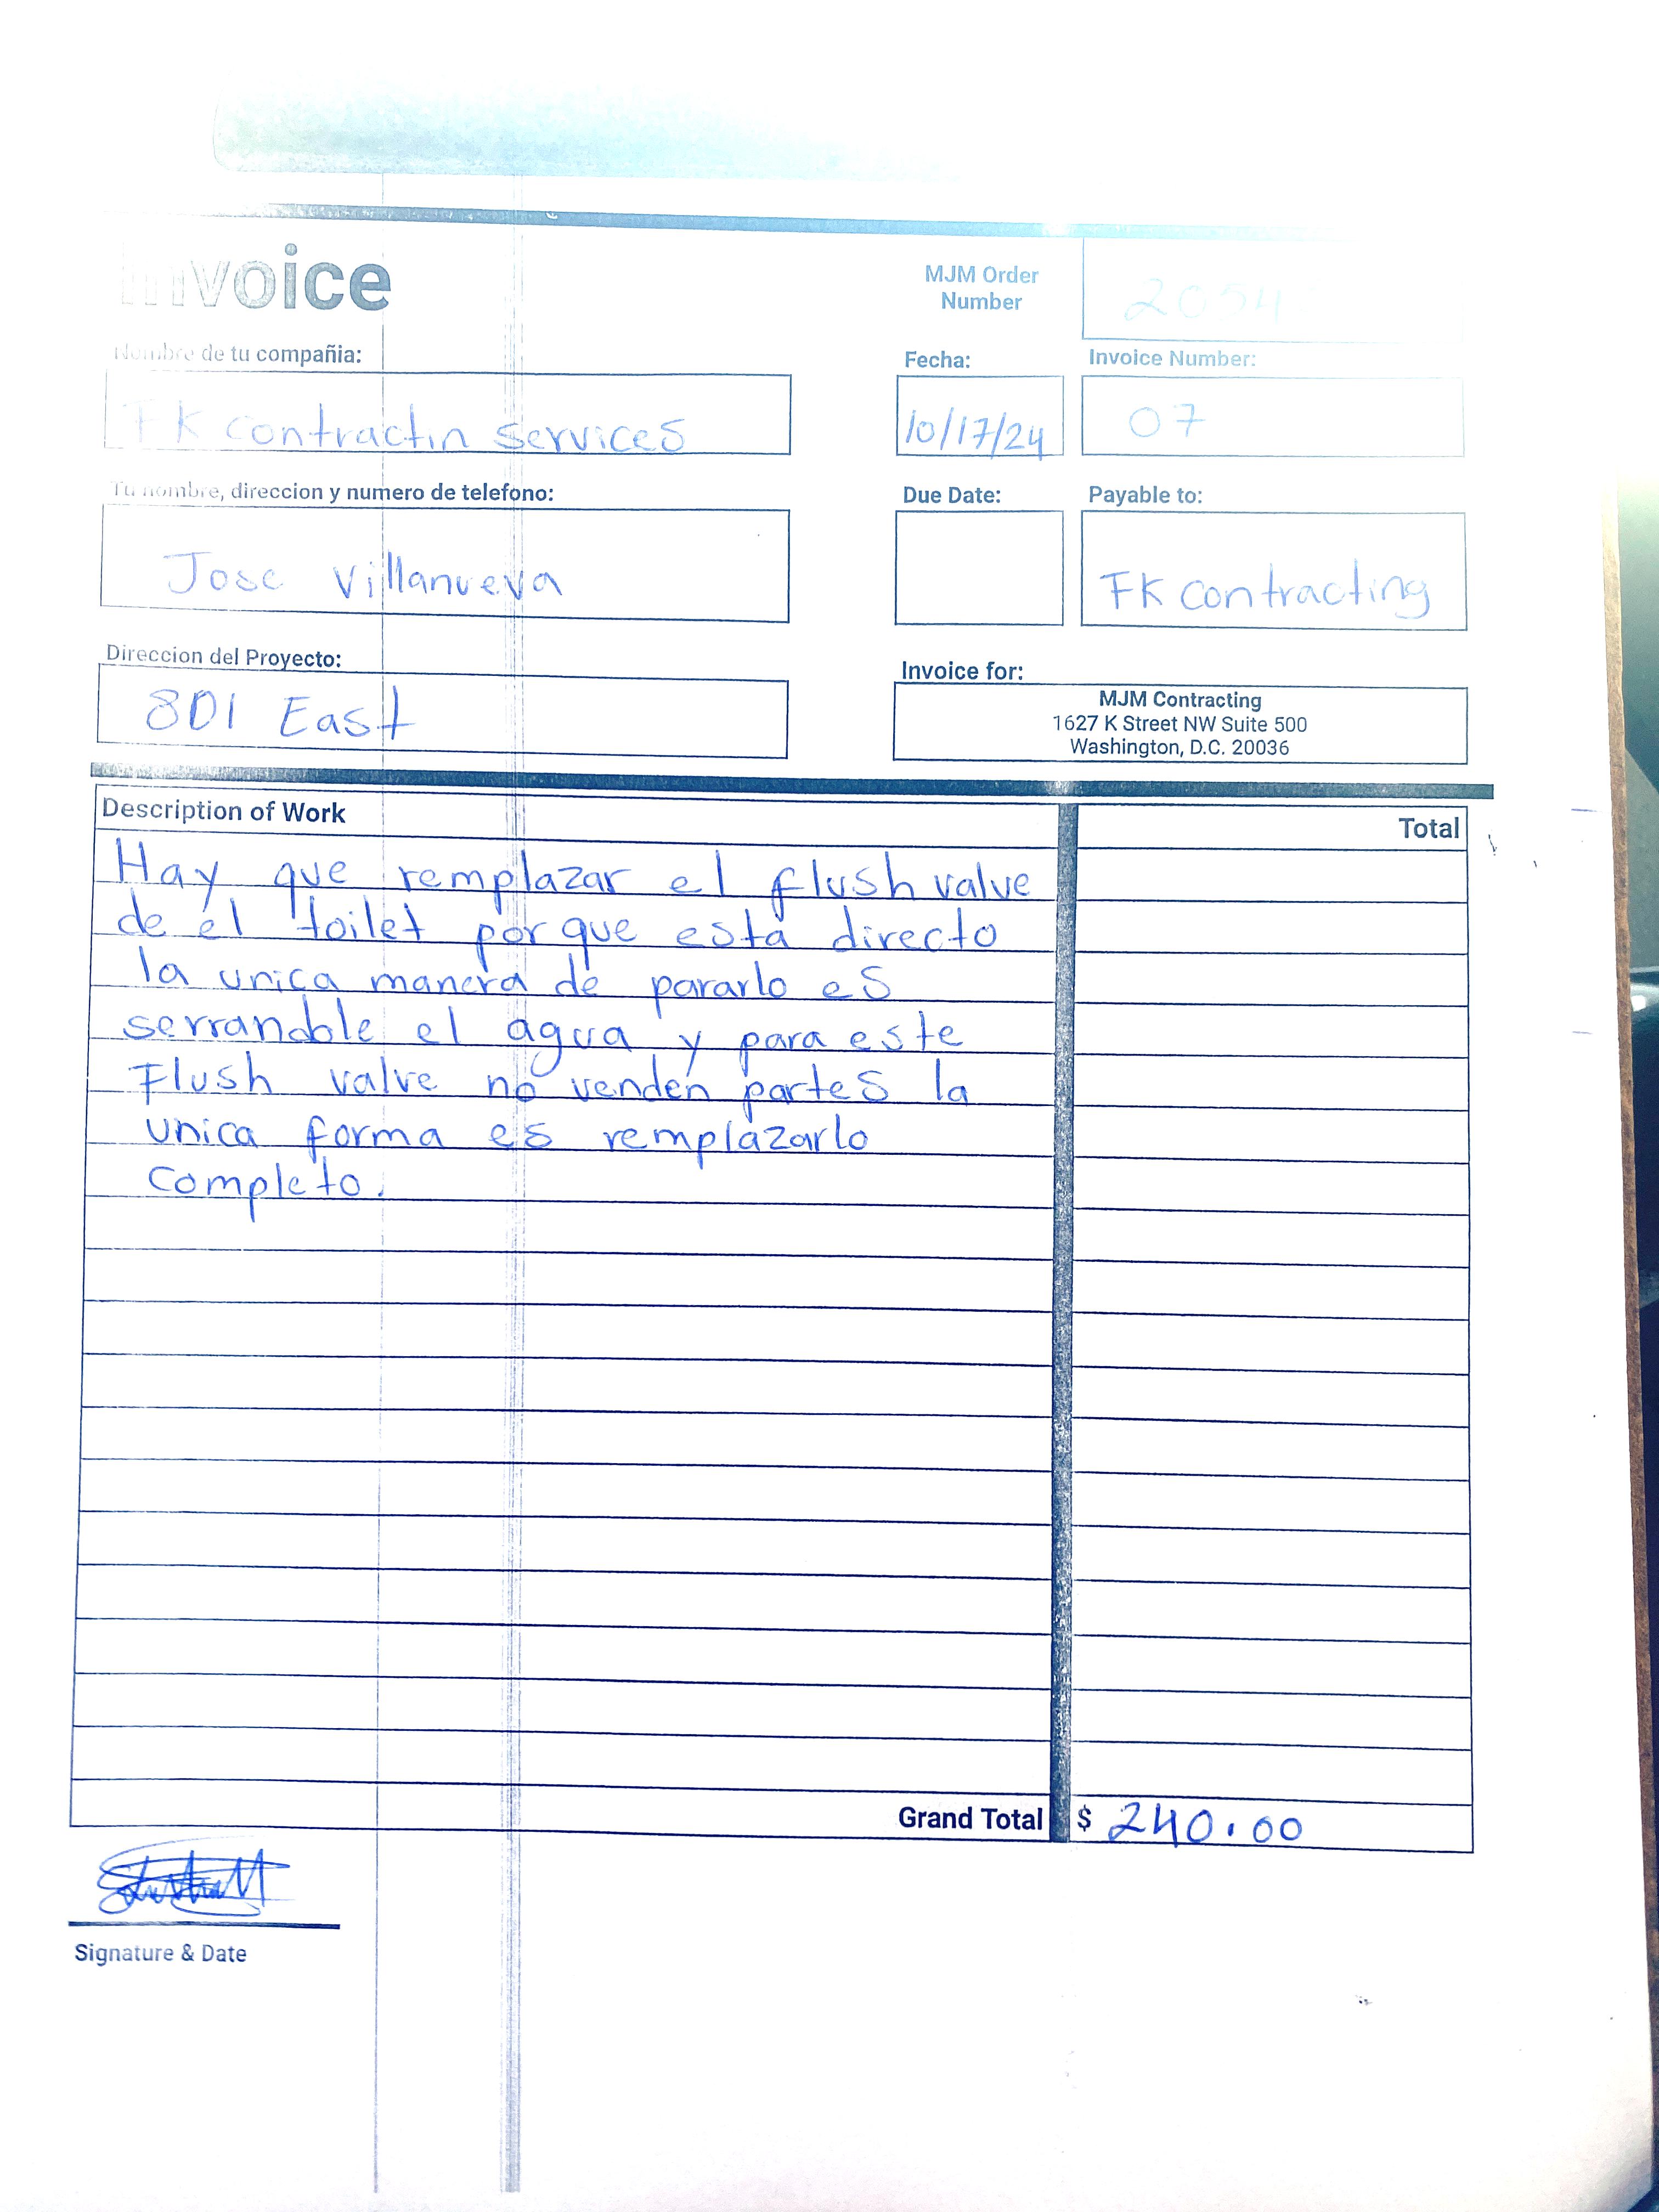 Invoice
MJM Order
Number
2054
Nombre de tu compañia:
Fecha:
Invoice Number:
FK contractin services
10/17/24
07
Tu nombre, direccion y numero de telefono:
Due Date:
Payable to:
Jose Villanueva
FK contracting
Direccion del Proyecto:
Invoice for:
801 East
MJM Contracting
1627 K Street NW Suite 500
Washington, D.C. 20036
Description of Work
Total
Hay que remplazar el flush valve
de el toilet por que esta directo
la unica manera de pararlo es
serrandole el agua y para este
Flush valve no venden partes la
unica forma es remplazarlo
completo.
Grand Total $ 240.00
Signature & Date